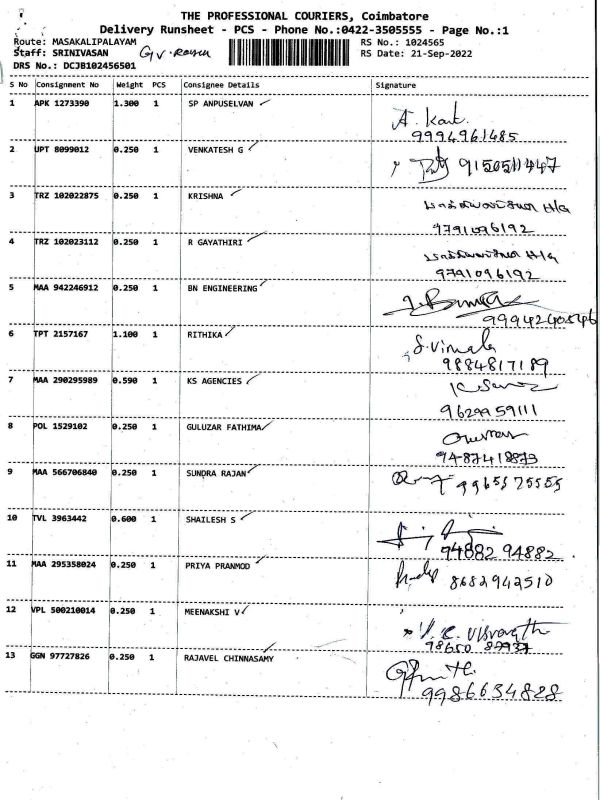 THE PROFESSIONAL COURIERS, Coimbatore
Delivery Runsheet - PCS - Phone No.:0422-3505555 - Page No.:1
Route: MASAKALIPALAYAM RS No.: 1024565
Staff: SRINIVASAN G.V. RS Date: 21-Sep-2022
DRS No.: DCJB102456501
S No Consignment No Weight PCS Consignee Details Signature
1 APK 1273390 1.300 1 SP ANPUSELVAN A.
9994961485
2 UPT 8099012 0.250 1 VENKATESH G 9150511447
3 TRZ 102022875 0.250 1 KRISHNA H/G
9791096192
4 TRZ 102023112 0.250 1 R GAYATHIRI H/G
9791096192
5 MAA 942246912 0.250 1 BN ENGINEERING
6 TPT 2157167 1.100 1 RITHIKA S.Vimala
9884817189
7 MAA 290295989 0.590 1 KS AGENCIES
9629959111
8 POL 1529102 0.250 1 GULUZAR FATHIMA
9487418873
9 MAA 566706840 0.250 1 SUNDRA RAJAN 9965575555
10 TVL 3963442 0.600 1 SHAILESH S
94882 94882
11 MAA 295358024 0.250 1 PRIYA PRANMOD 8682942510
12 VPL 500210014 0.250 1 MEENAKSHI V V.R. Visvanath
98650
13 GGN 97727826 0.250 1 RAJAVEL CHINNASAMY
9986634828